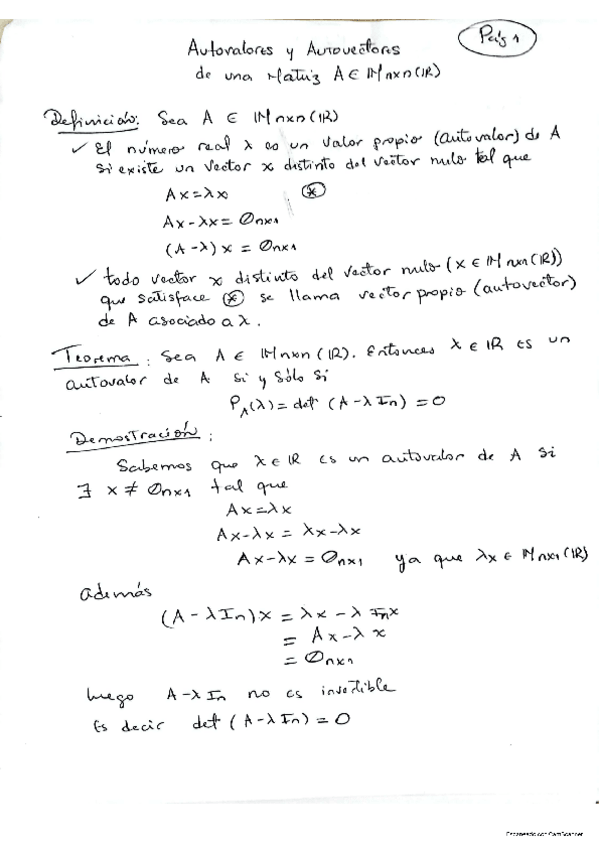 Pág 1
Autovalores y Autovectores
de una Matriz A ∈ Mnxn(IR)
Definición: Sea A ∈ Mnxn(IR)
✓ El número real λ es un valor propio (autovalor) de A
si existe un vector x distinto del vector nulo tal que
Ax=λx ⊛
Ax-λx= Onx1
(A-λ)x = Onx1
✓ todo vector x distinto del vector nulo (x ∈ Mnx1(IR))
que satisface ⊛ se llama vector propio (autovector)
de A asociado a λ.
Teorema: Sea A ∈ Mnxn(IR). Entonces λ ∈ IR es un
autovalor de A si y sólo si
PA(λ) = det (A-λIn) = 0
Demostración:
Sabemos que λ∈IR es un autovalor de A si
∃ x ≠ Onx1 tal que
Ax=λx
Ax-λx = λx-λx
Ax-λx = Onx1 ya que λx ∈ Mnx1(IR)
además
(A-λIn)x = λx - λ Inx
= Ax-λx
= Onx1
luego A-λIn no es invertible
Es decir det (A-λIn) = 0
Escaneado con CamScanner